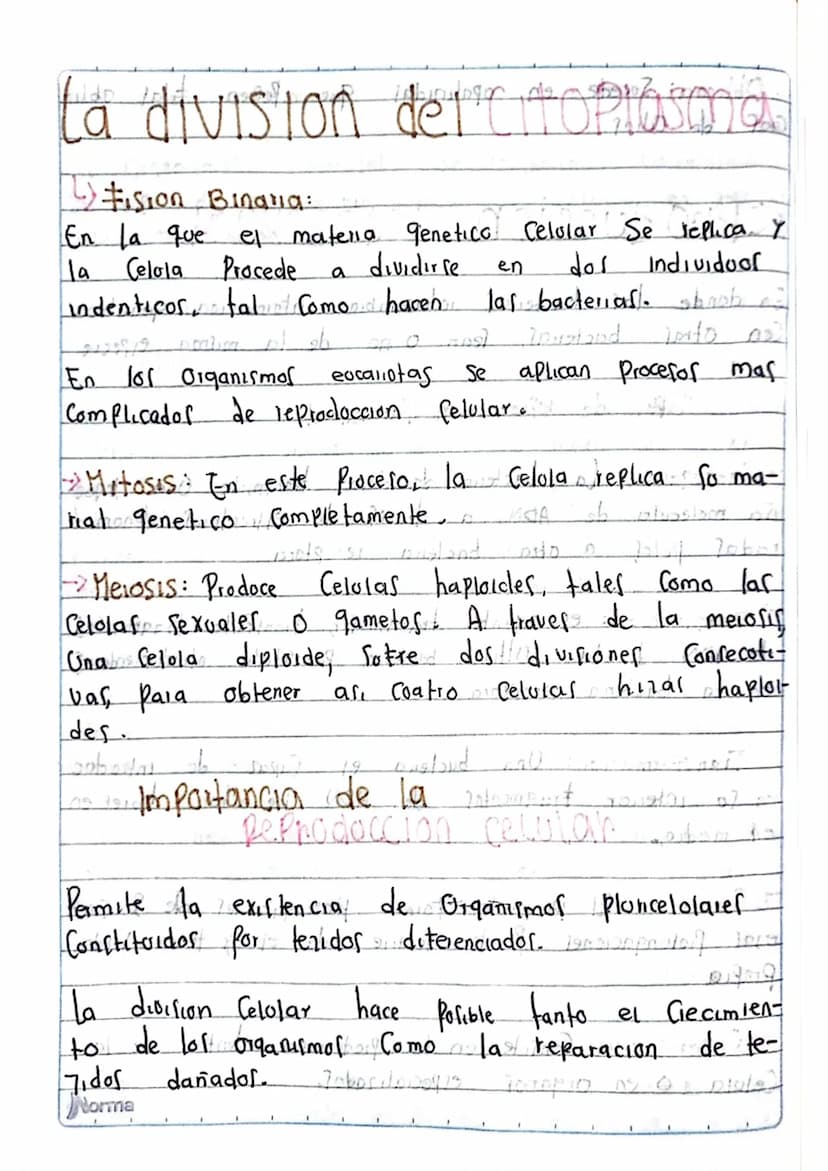 La division del citoplasma
↳ Fision Binaria:
En la que el materia genetico Celular Se replica y
la Celula Procede a dividirse en dos individuos
indenticos, tal como hacen las bacterias.
En los Organismos eucariotas se aplican Procesos mas
Complicados de reproduccion Celular.
→ Mitosis: En este Proceso, la Celula replica Su ma-
rial genetico Completamente.
→ Meiosis: Produce Celulas haploides, tales Como las
Celulas Sexuales o gametos. A traves de la meiosis,
Una Celula diploide, Sufre dos divisiones Consecuti-
vas, para obtener asi Cuatro Celulas hizas haploi-
des.
Importancia de la
Reproduccion celular
Permite la existencia de Organismos pluricelulares
Constituidos por tezidos diferenciados.
La division Celular hace Posible tanto el Crecimien-
to de los organismos Como la reparacion de te-
zidos dañados.
Norma